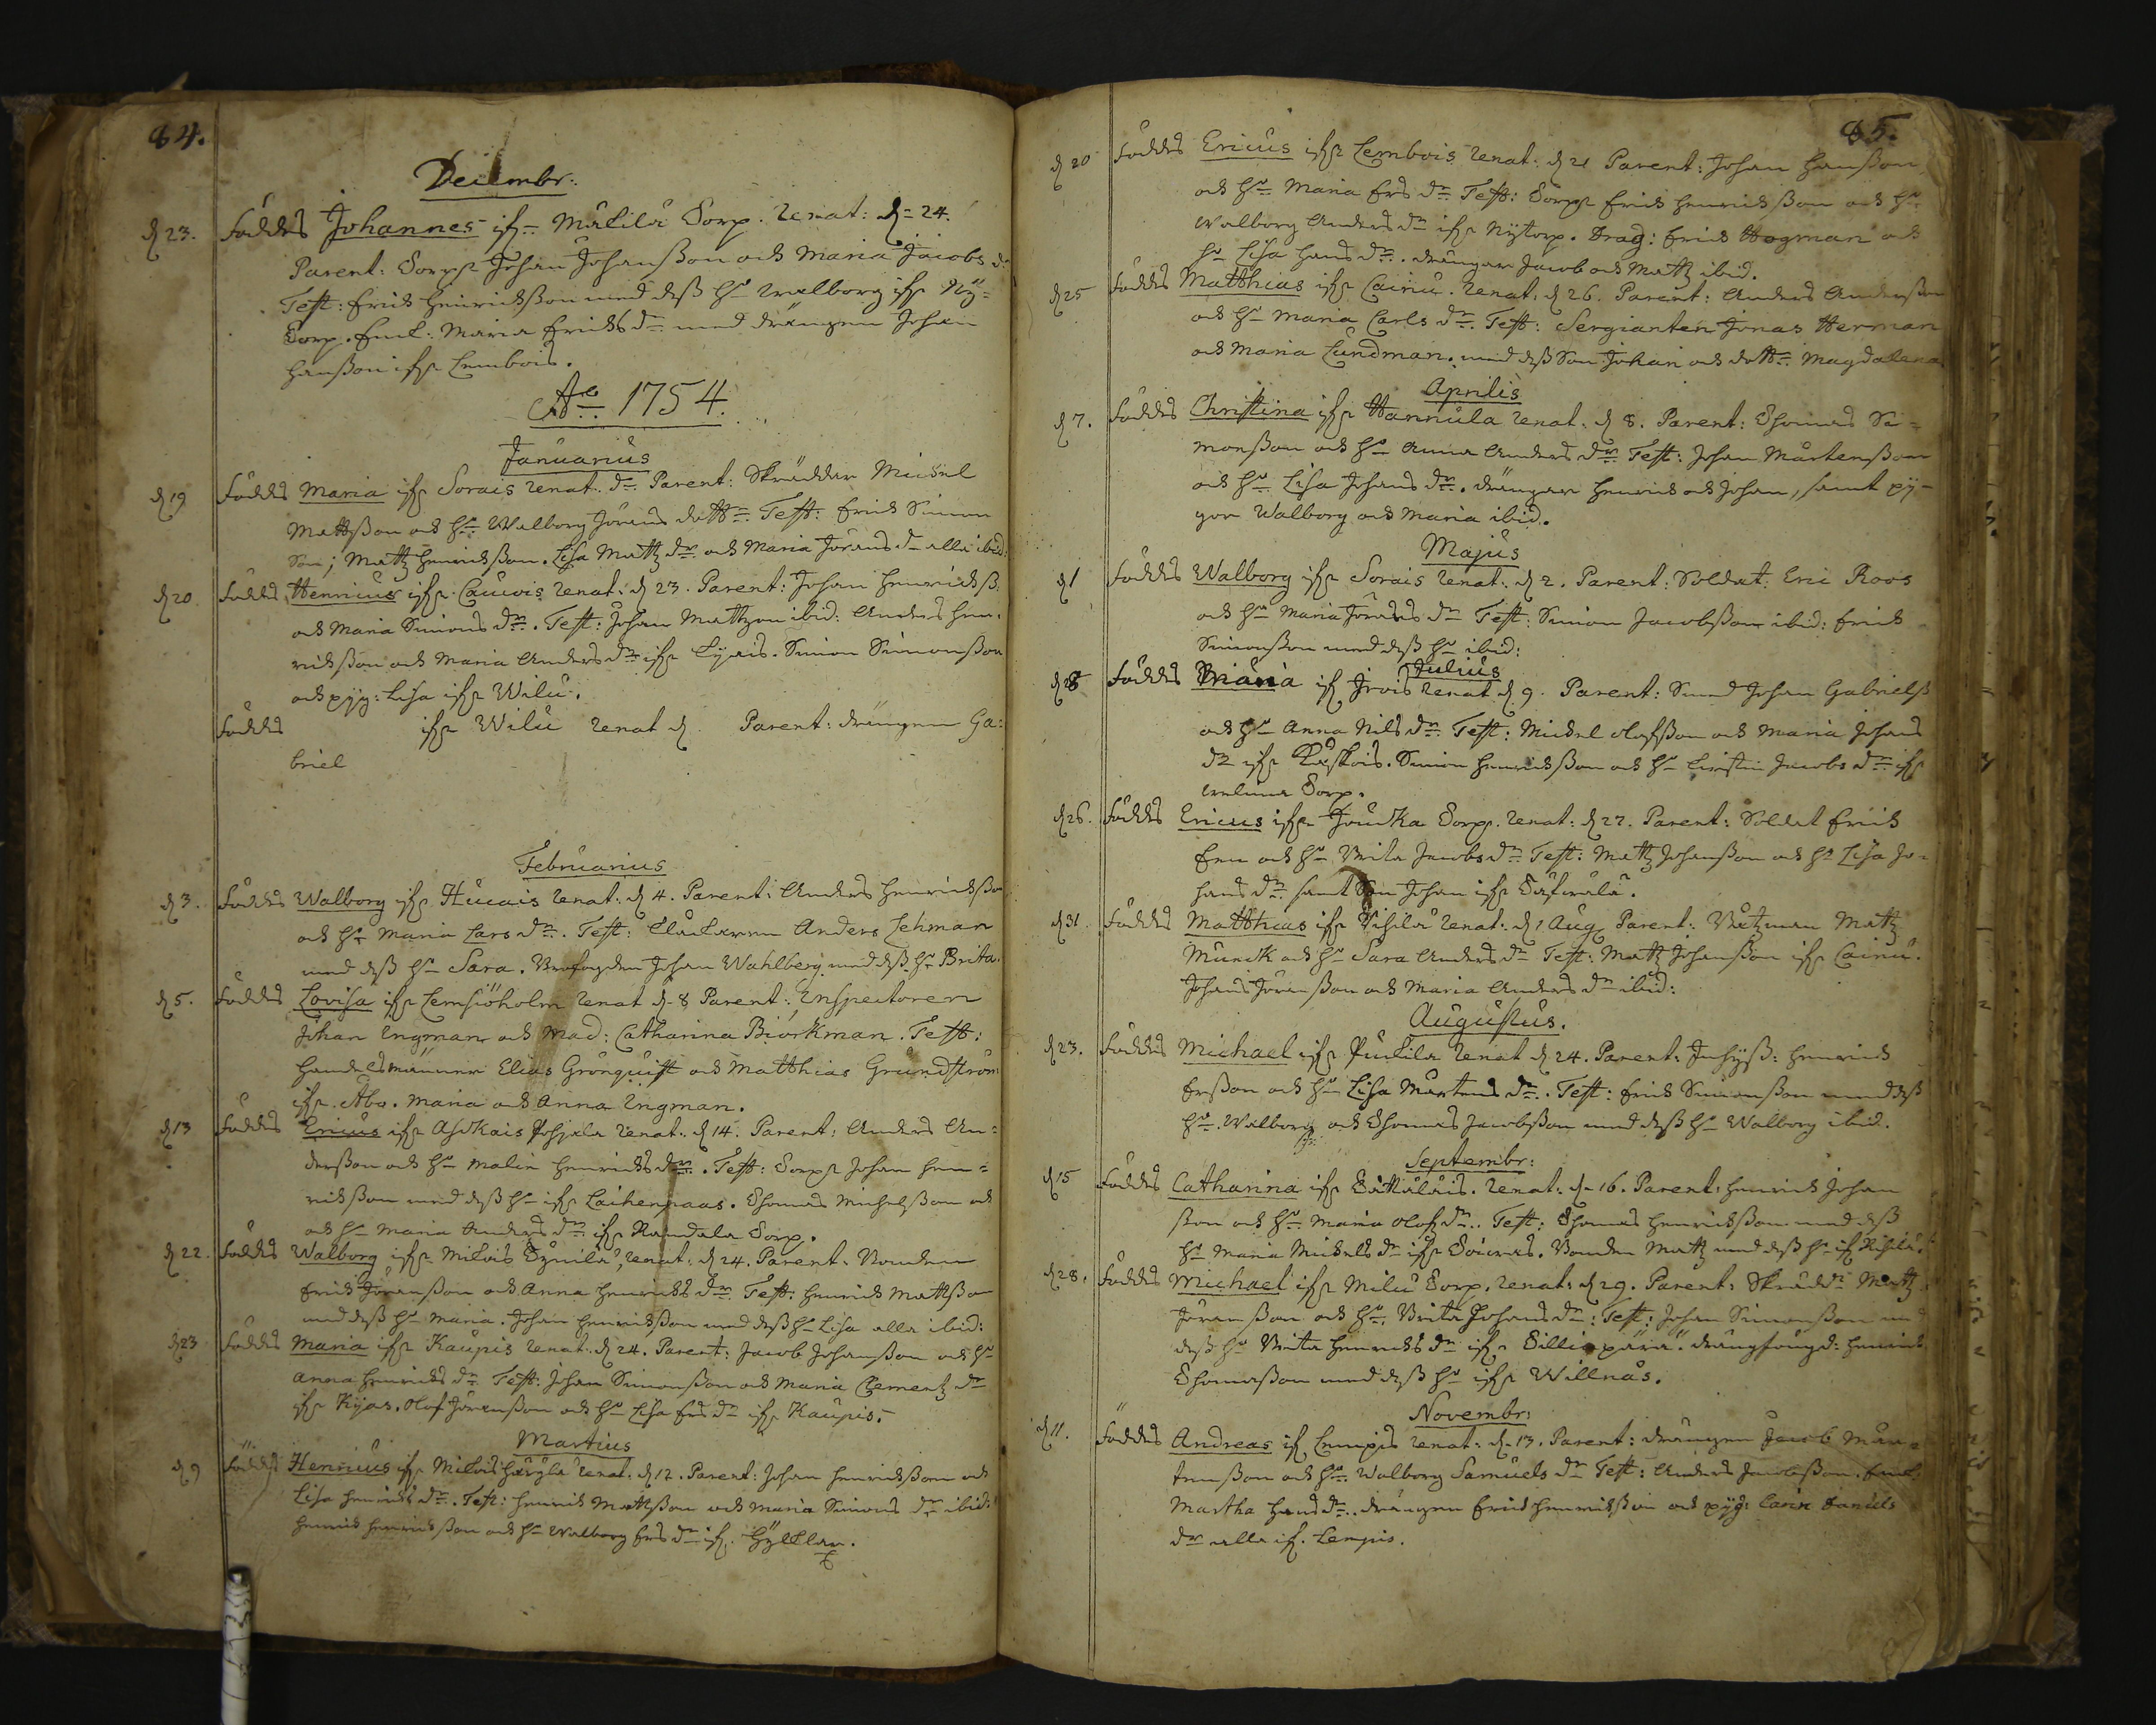 84.
Decembr:
d 23. Föddes Johannes ifr. Mälilä Torp. Renat: d. 24.
Parent: Torp: Johan Johansson och Maria Jacobs dr
Test: Erich Henrichsson med dess hu Walborg ifr Ny-
torp. Enck: Maria Erichs dr med drängen Johan
Hansson ifr Lembois.
Ao 1754.
Januarius
d 19 Föddes Maria ifr Sorais renat. Parent: Skräddar Michel
Mattsson och hu Walborg Jörans dottr. Test: Erich Simon
Son; Matz Henrichsson. Lisa Matz dr och Maria Jörans dr alla ibid:
d 20 Föddes Henricus ifr renat: d 23. Parent: Johan Henrichss:
och Maria Simons dr. Test: Johan Mattzon ibid: Anders Hen-
richsson och Maria Anders dr ifr Simon Simonsson
och pyg: Lisa ifr Wilu.
Föddes ifr Wilu renat d Parent: drängen Ga:
briel
Februarius
d 3. Föddes Walborg ifr Hucais renat: d 4. Parent: Anders Henrichsson
och hu Maria Lars dr. Test: Klockaren Anders Lehman
med dess hu Sara. Johan Wahlberg med dess hu Brita.
d 5. Föddes Lovisa ifr Lemsiöholm renat d 8 Parent: Inspectoren
Johan Ingman och Mad: Catharina Biörkman. Test:
Handelsmännen Elias Grönquist och Matthias Grundström
ifr. Åbo. Maria och Anna Ingman.
d 13 Föddes Ericus ifr Askais Pohjala renat: d 14. Parent: Anders An-
dersson och hu Malin Henrichs dr. Test: Torp: Johan Hen-
richsson med dess hu ifr Laihenpaas. Thomas Michelsson och
och hu Maria Anders dr ifr Randala Torp.
d 22. Föddes Walborg ifr Milois renat: d 24. Parent. Bonden
Erich Jöransson och Anna Henrichs dr. Test: Henrich Mattsson
med dess hu Maria. Johan Henrichsson med dess hu Lisa alla ibid:
d 23 Föddes Maria ifr Kaupis renat: d 24. Parent: Jacob Johansson och hu
Anna Henrichs dr Test: Johan Simonsson och Maria Clementz dr
ifr Kijas. Olof Jöransson och hu Lisa Ers dr ifr Kaupis.
Martius
d 9 Föddes Henricus ifr Milois renat: d 12. Parent: Johan Henrichsson och
Lisa Henrichs dr. Test: Henrich Mattsson och Maria Simons dr ibid:
Henrich Henrichsson och hu Walborg Ers dr if.
85.
d 20 Föddes Ericus ifr Lembois renat: d 21 Parent: Johan Hansson
och hu Maria Ers dr Test: Torp: Erich Henrichsson och hu
Walborg Anders dr ifr Nytorp. Drag: Erich Hogman och
hu Lisa Hans dr. drängar Jacob och Matz ibid.
d 25 Föddes Matthias ifr Cainu. renat: d 26. Parent: Anders Andersson
och hu Maria Carls dr. Test: Sergianten Jonas Herman
och Maria Lundman. med dess Son Johan och dottr. Magdalena
Aprilis
d 7. Föddes Christina ifr Hannula renat: d 8. Parent: Thomas Si-
monsson och hu Anna Anders dr. Test: Johan Mårtensson
och hu Lisa Johans dr. drängar Henrich och Johan, samt py-
gor Walborg och Maria ibid.
Majus
d 1 Föddes Walborg ifr Sorais renat: d 2. Parent: Soldat: Eric Roos
och hu Maria Jörans dr Test: Simon Jacobsson ibid: Erich
Simonsson med dess hu ibid:
Julius
d 8 Föddes Maria if Irois renat d 9. Parent: Smed Johan Gabrielss
och hu Anna Nils dr. Test: Michel Olofsson och Maria Johans
dr ifr Simon Henrichsson och hu Christin Jacobs dr ifr
Torp.
d 26. Föddes Ericus ifr Jouka Torp. renat: d 27. Parent: Soldat Erich
och hu Brita Jacobs dr Test: Matz Johansson och hu Lisa Jo-
hans dr samt Son Johan ifr
d 31. Föddes Matthias ifr renat: d 1 Aug. Parent: Båtzman Matz
Munck och hu Sara Anders dr Test: Matz Johansson ifr Cainu.
Johans Jöransson och Maria Anders dr ibid:
Augustus.
d 23. Föddes Michael ifr renat d 24. Parent: Inhyss: Henrich
Ersson och hu Lisa Mårtens dr. Test: Erich Simonsson med dess
hu Walborg och Thomas Jacobsson med dess hu Walborg ibid.
Septembr:
d 15 Föddes Catharina ifr renat: d 16. Parent: Henrich Johan
sson och hu Maria Olofs dr. Test: Thomas Henrichsson med dess
hu Maria Michels dr ifr Bonden Matz med dess hu if
d 28. Föddes Michael ifr Milu Torp. renat: d 29. Parent: Skrädd: Matz
Jöransson och hu. Brita Johans dr: Test: Johan Simonsson med
dess hu Brita Henrichs dr ifr Henrich
Thomasson med dess hu ifr Willnäs.
Novembr:
d 11. Föddes Andreas if Lempis renat: d 13. Parent: drängen Jacob Mår-
tensson och hu. Walborg Samuels dr Test: Anders Jacobsson. Enck:
Martha Hans dr. drängen Erich Henrichsson och pyg: Carin Daniels
dr alla if. Lempis.